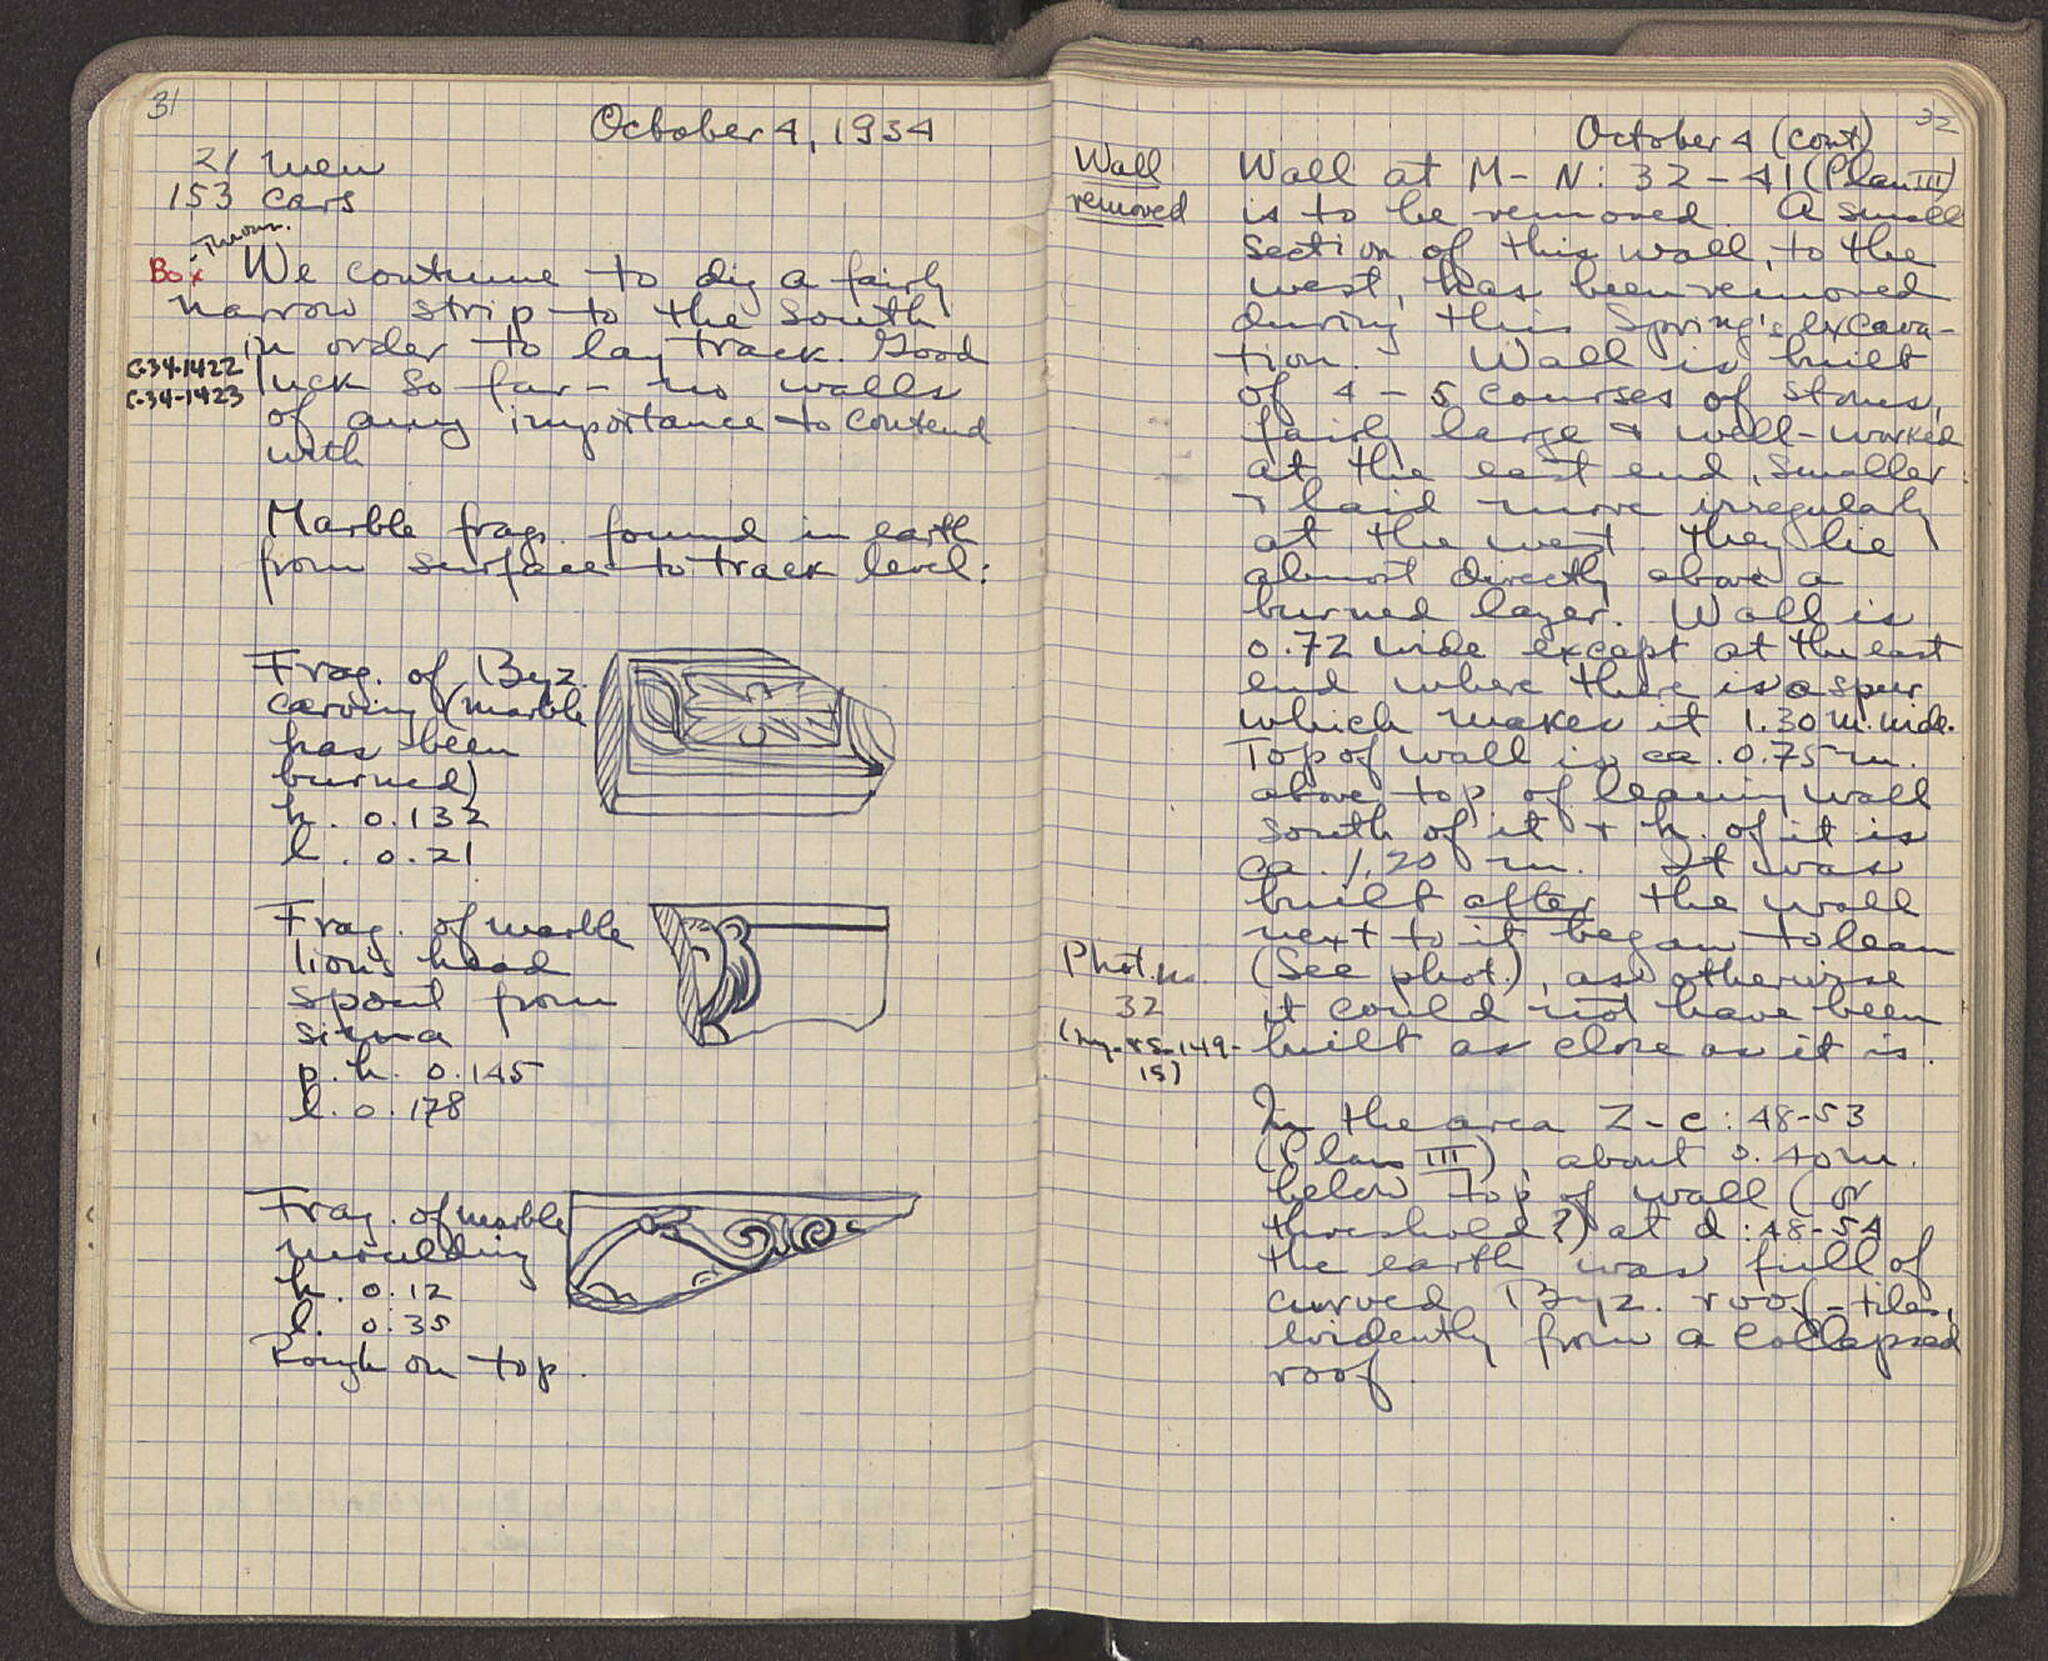 31
October 4, 1934
21 men
153 cars
Throw.
Box We continue to dig a fairly
narrow strip to the South
in order to lay track. Good
C-34-1422
luck so far - no walls
C-34-1423
of any importance to contend
with
Marble frags. found in earth
from surface to track level:
Frag. of Byz.
carving (marble
has been
burned)
h. 0.132
l. 0.21
Frag. of marble
lion's head
spout from
sima
p.h. 0.145
l. 0.178
Frag. of marble
moulding
h. 0.12
l. 0.35
Rough on top.
32
October 4 (cont)
Wall
removed
Wall at M-N: 32-41 (Plan III)
is to be removed. A small
section of this wall, to the
west, has been removed
during this Spring's excava-
tion. Wall is built
of 4-5 courses of stones,
fairly large + well-worked
at the east end, smaller
+ laid more irregularly
at the west. They lie
almost directly above a
burned layer. Wall is
0.72 wide except at the east
end where there is a spur
which makes it 1.30 m. wide.
Top of wall is ca. 0.75 m.
above top of leaning wall
south of it + h. of it is
ca. 1.20 m. It was
built after the wall
next to it began to lean
Phot. no.
32
(See phot.), as otherwise
it could not have been
built as close as it is.
In the area Z-c: 48-53
(Plan III), about 0.40 m.
below top of wall (or
threshold?) at d: 48-54
the earth was full of
curved Byz. roof-tiles,
evidently from a collapsed
roof.